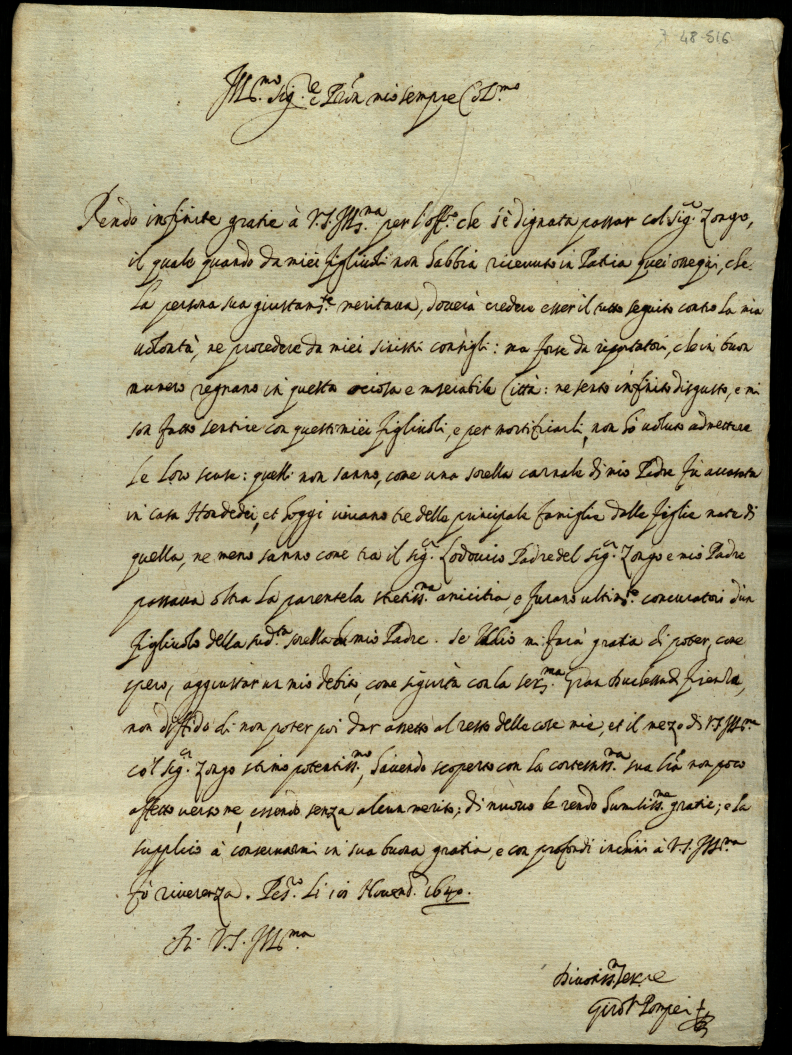 48-516
Ill.mo Sig.re e Pron mio sempre Col.mo
Rendo infinite gratie à V.S. Ill.ma per l'off.o che s'è dignata passar col Sig.r Zongo,
il quale quando da miei figliuoli non habbia ricevuto in Patria quei ossequi, che
la persona sua giustam.te meritava, doverà credere esser il tutto seguito contro la mia
volontà, ne procedere da miei sinistri consigli: ma forse da che in buon
numero regnano in questa ociosa e miserabile Città: ne sento infinito disgusto, e mi
son fatto sentire con questi miei figliuoli, e per mortificarli, non hò voluto admettere
le loro scuse: quelli non sanno, come una sorella carnale di mio Padre fù accasata
in casa Hondedei, et hoggi vivano tre delle principale famiglie dalle figlie nate di
quella, ne meno sanno come tra il Sig.r Lodovico Padre del Sig.r Zongo e mio Padre
passava oltra la parentela stretiss.ma amicitia, e furano ultim.te d'un
figliuolo della sud.ta sorella di mio Padre. Se Iddio mi farà gratia di poter, come
spero, aggiustar un mio debito, come seguirà con la Ser.ma Gran Duchessa di Firenze,
non diffido di non poter poi dar assetto al resto delle cose mie, et il mezo di V.S. Ill.ma
col Sig.r Zongo stimo potentiss.mo, havendo scoperto con la cortesiss.ma sua non poco
affetto verso me, essendo senza alcun merito; di nuovo le rendo humiliss.ma gratie; e la
supplico à conservarmi in sua buona gratia, e con profondi inchini à V.S. Ill.ma
fò riverenza. Pes.ro Li 101 Novemb. 1640.
Di V.S. Ill.ma
Divotiss.
Pompei